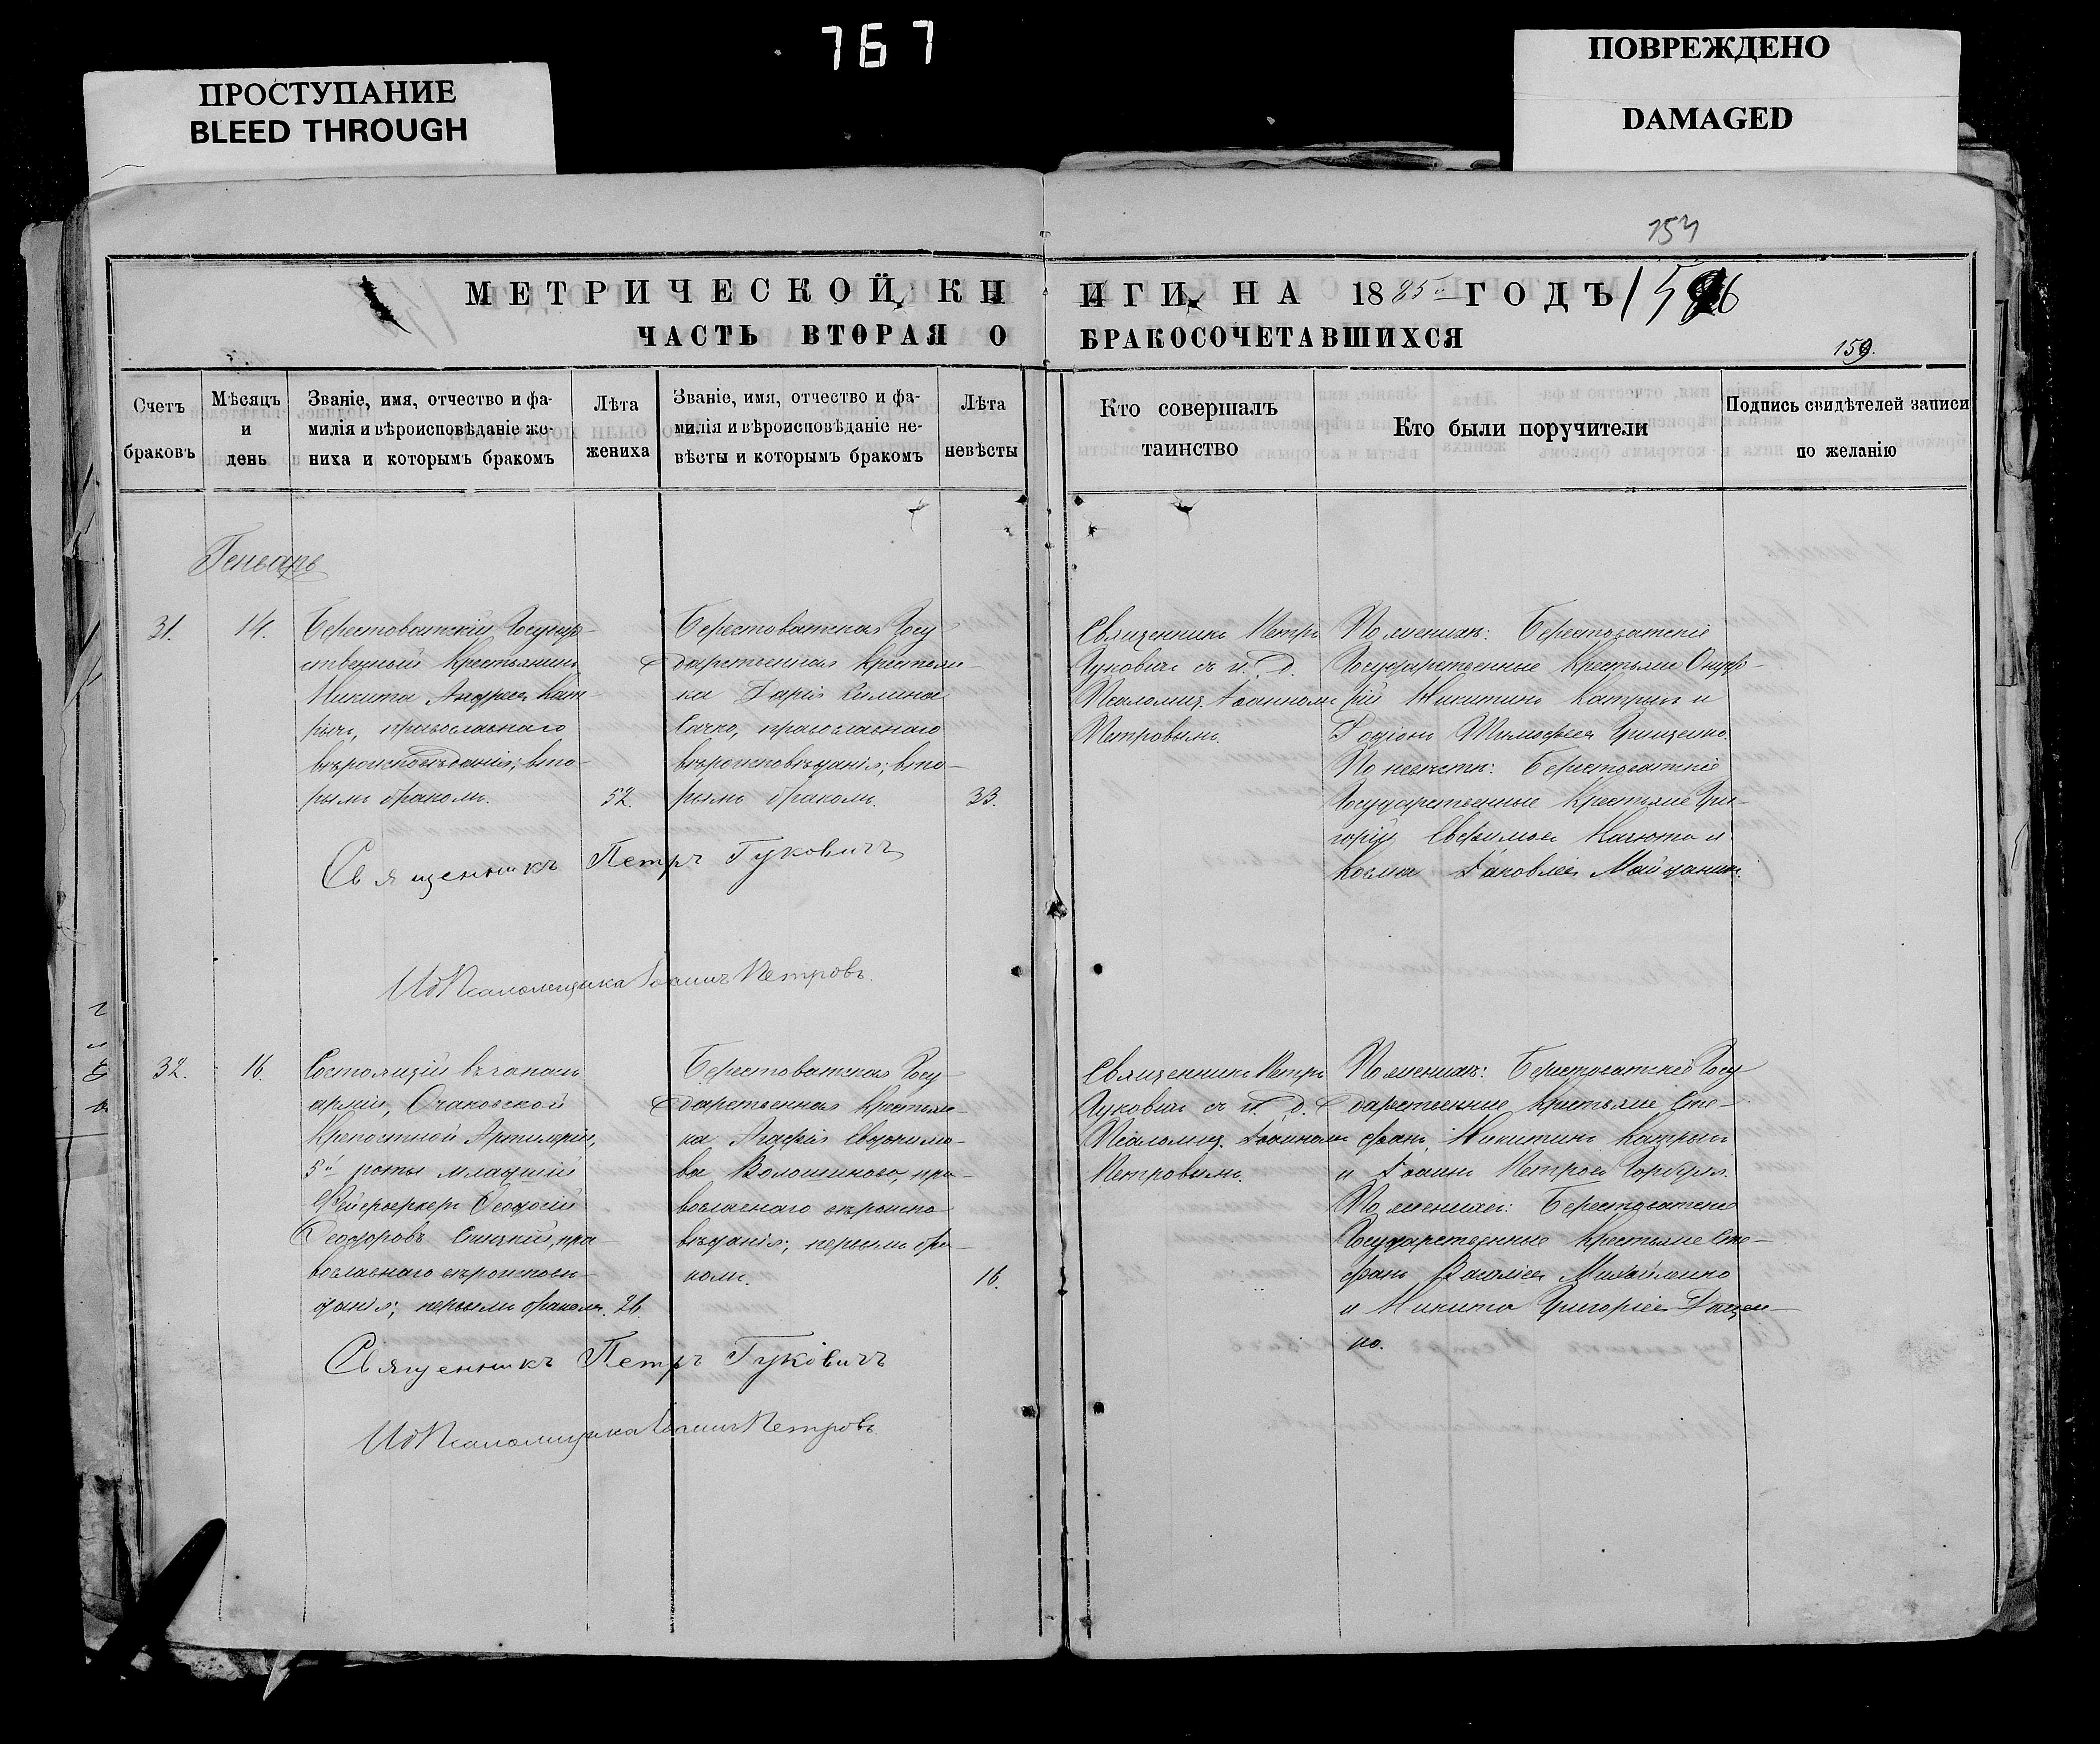 767
ПРОСТУПАНИЕ
BLEED THROUGH
ПОВРЕЖДЕНО
DAMAGED
154
МЕТРИЧЕСКОЙ КН
ИГИ НА 1885й ГОДЪ
ЧАСТЬ ВТОРАЯ О
БРАКОСОЧЕТАВШИХСЯ
159.
Счетъ
браковъ
Мѣсяцъ
и
день
Званіе, имя, отчество и фа-
милія и вѣроисповѣданіе же-
ниха и которымъ бракомъ
Лѣта
жениха
Званіе, имя, отчество и фа-
милія и вѣроисповѣданіе не-
вѣсты и которымъ бракомъ
Лѣта
невѣсты
Кто совершалъ
таинство
Кто были поручители
Подпись свидѣтелей записи
по желанію
Генварь
31.
14.
Берестоватскій Государ-
ственный Крестьянинъ
Никита Андреевъ Кат-
рычъ, православнаго
вѣроисповѣданія; вто-
рымъ бракомъ.
52.
Берестоватская Госу
дарственная крестьян-
ка Дарія
православнаго
вѣроисповѣданія; вто-
рымъ бракомъ.
33.
Священникъ Петръ
Гуковичъ съ и. д.
Псаломщ. Іоанномъ
Петровымъ.
По женихѣ: Берестоватскіе
Государственные Крестьяне Онуф-
рій Никитинъ Катрычъ и
Родіонъ Тимофеевъ Грищенко.
По невѣстѣ: Берестоватскіе
Государственные Крестьяне Гри-
горій Евфимовъ и
Косма Іаковлевъ
Священникъ Петръ Гуковичъ
ИД Псаломщика Іоаннъ Петровъ.
32.
16.
Состоящій въ запасѣ
арміи, Очаковской
Крепостной Артилеріи,
5й роты младшій
Фейерверкеръ Феодосій
Феодоровъ пра-
вославнаго вѣроисповѣ-
данія; первымъ бракомъ.
26.
Берестоватская Госу
дарственная крестьян-
ка Агафія Евфимо-
ва Волошинова, пра-
вославнаго вѣроиспо-
вѣданія; первымъ бра-
комъ.
16.
Священникъ Петръ
Гуковичъ съ и. д.
Псаломщ. Іоанномъ
Петровымъ.
По женихѣ: Берестоватскіе Госу
дарственные Крестьяне Сте-
фанъ Никитинъ Катрычъ
и Іоаннъ Петровъ
По женихѣ: Берестоватскіе
Государственные Крестьяне Сте-
фанъ Василіевъ Михайленко
и Никита Григоріевъ
ко.
Священникъ Петръ Гуковичъ
ИД Псаломщика Іоаннъ Петровъ